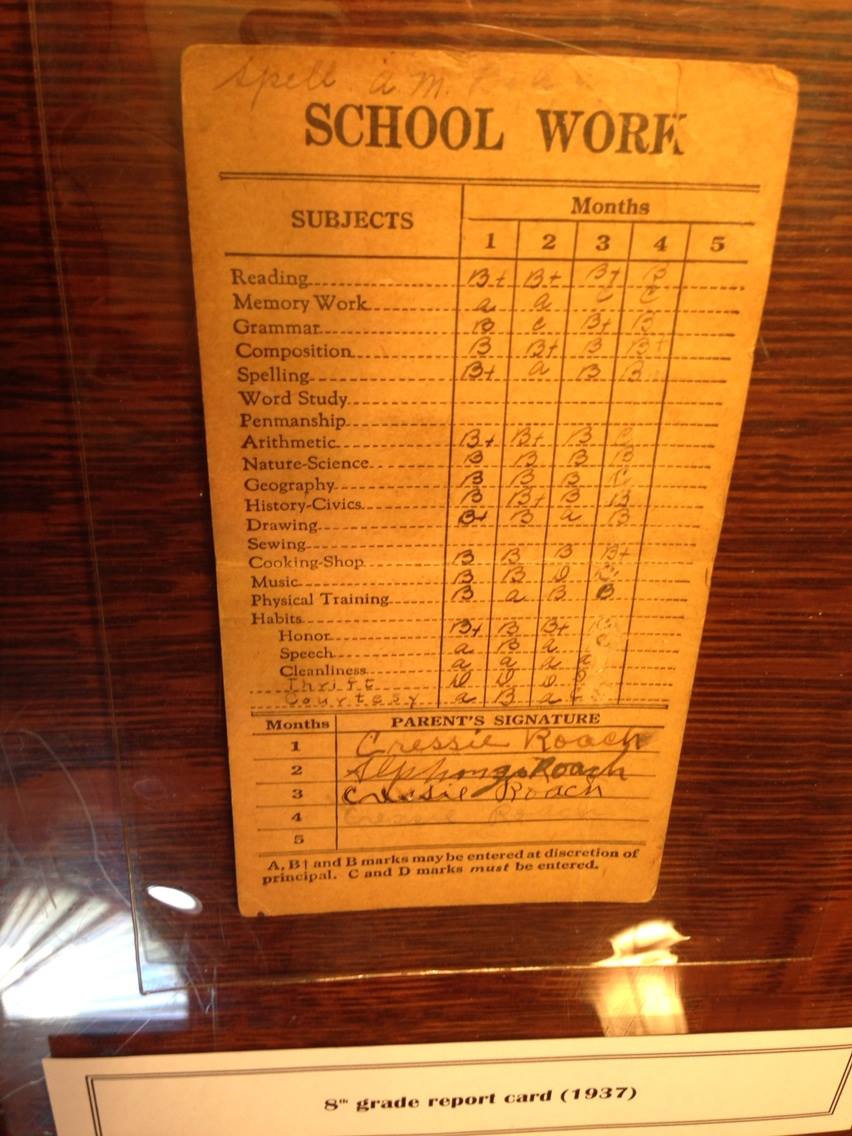 Spell a.m.
SCHOOL WORK
SUBJECTS Months
1 2 3 4 5
Reading B+ B+ B+ B
Memory Work a a C C
Grammar B C B+ B
Composition B B+ B B+
Spelling B+ a B B
Word Study
Penmanship
Arithmetic B+ B+ B
Nature-Science B B B B
Geography B B B
History-Civics B B+ B B
Drawing B+ B a B
Sewing
Cooking-Shop B B B B+
Music B B D
Physical Training B a B B
Habits
Honor B+ B B+
Speech a B a C
Cleanliness a a a a
Thrift D D D
Courtesy a B a
Months PARENT'S SIGNATURE
1 Cressie Roach
2 Alphonzo Roach
3 Cressie Roach
4 Cressie
5
A, B† and B marks may be entered at discretion of
principal. C and D marks must be entered.
8th grade report card (1937)